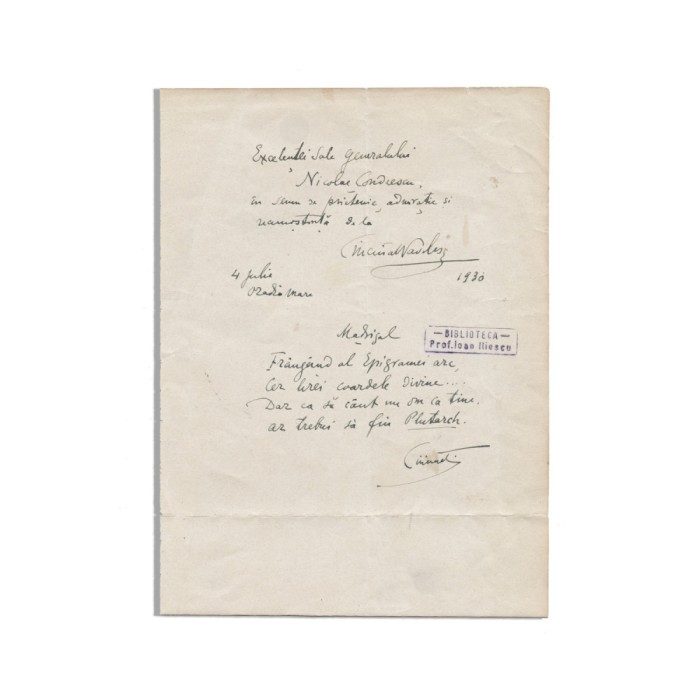 Excelenței Sale Generalului
Nicolae Condeescu,
în semn de prietenie, admirație si
recunoștință de la
Cincinat Pavelescu
4 Julie 1930
Oradia Mare
Madrigal
— BIBLIOTECA —
Prof. Ioan Iliescu
Frângând al Epigramei arc,
Cer lirei coardele divine....
Dar ca să cânt un om ca tine.
ar trebui să fiu Plutarch.
Cincinat